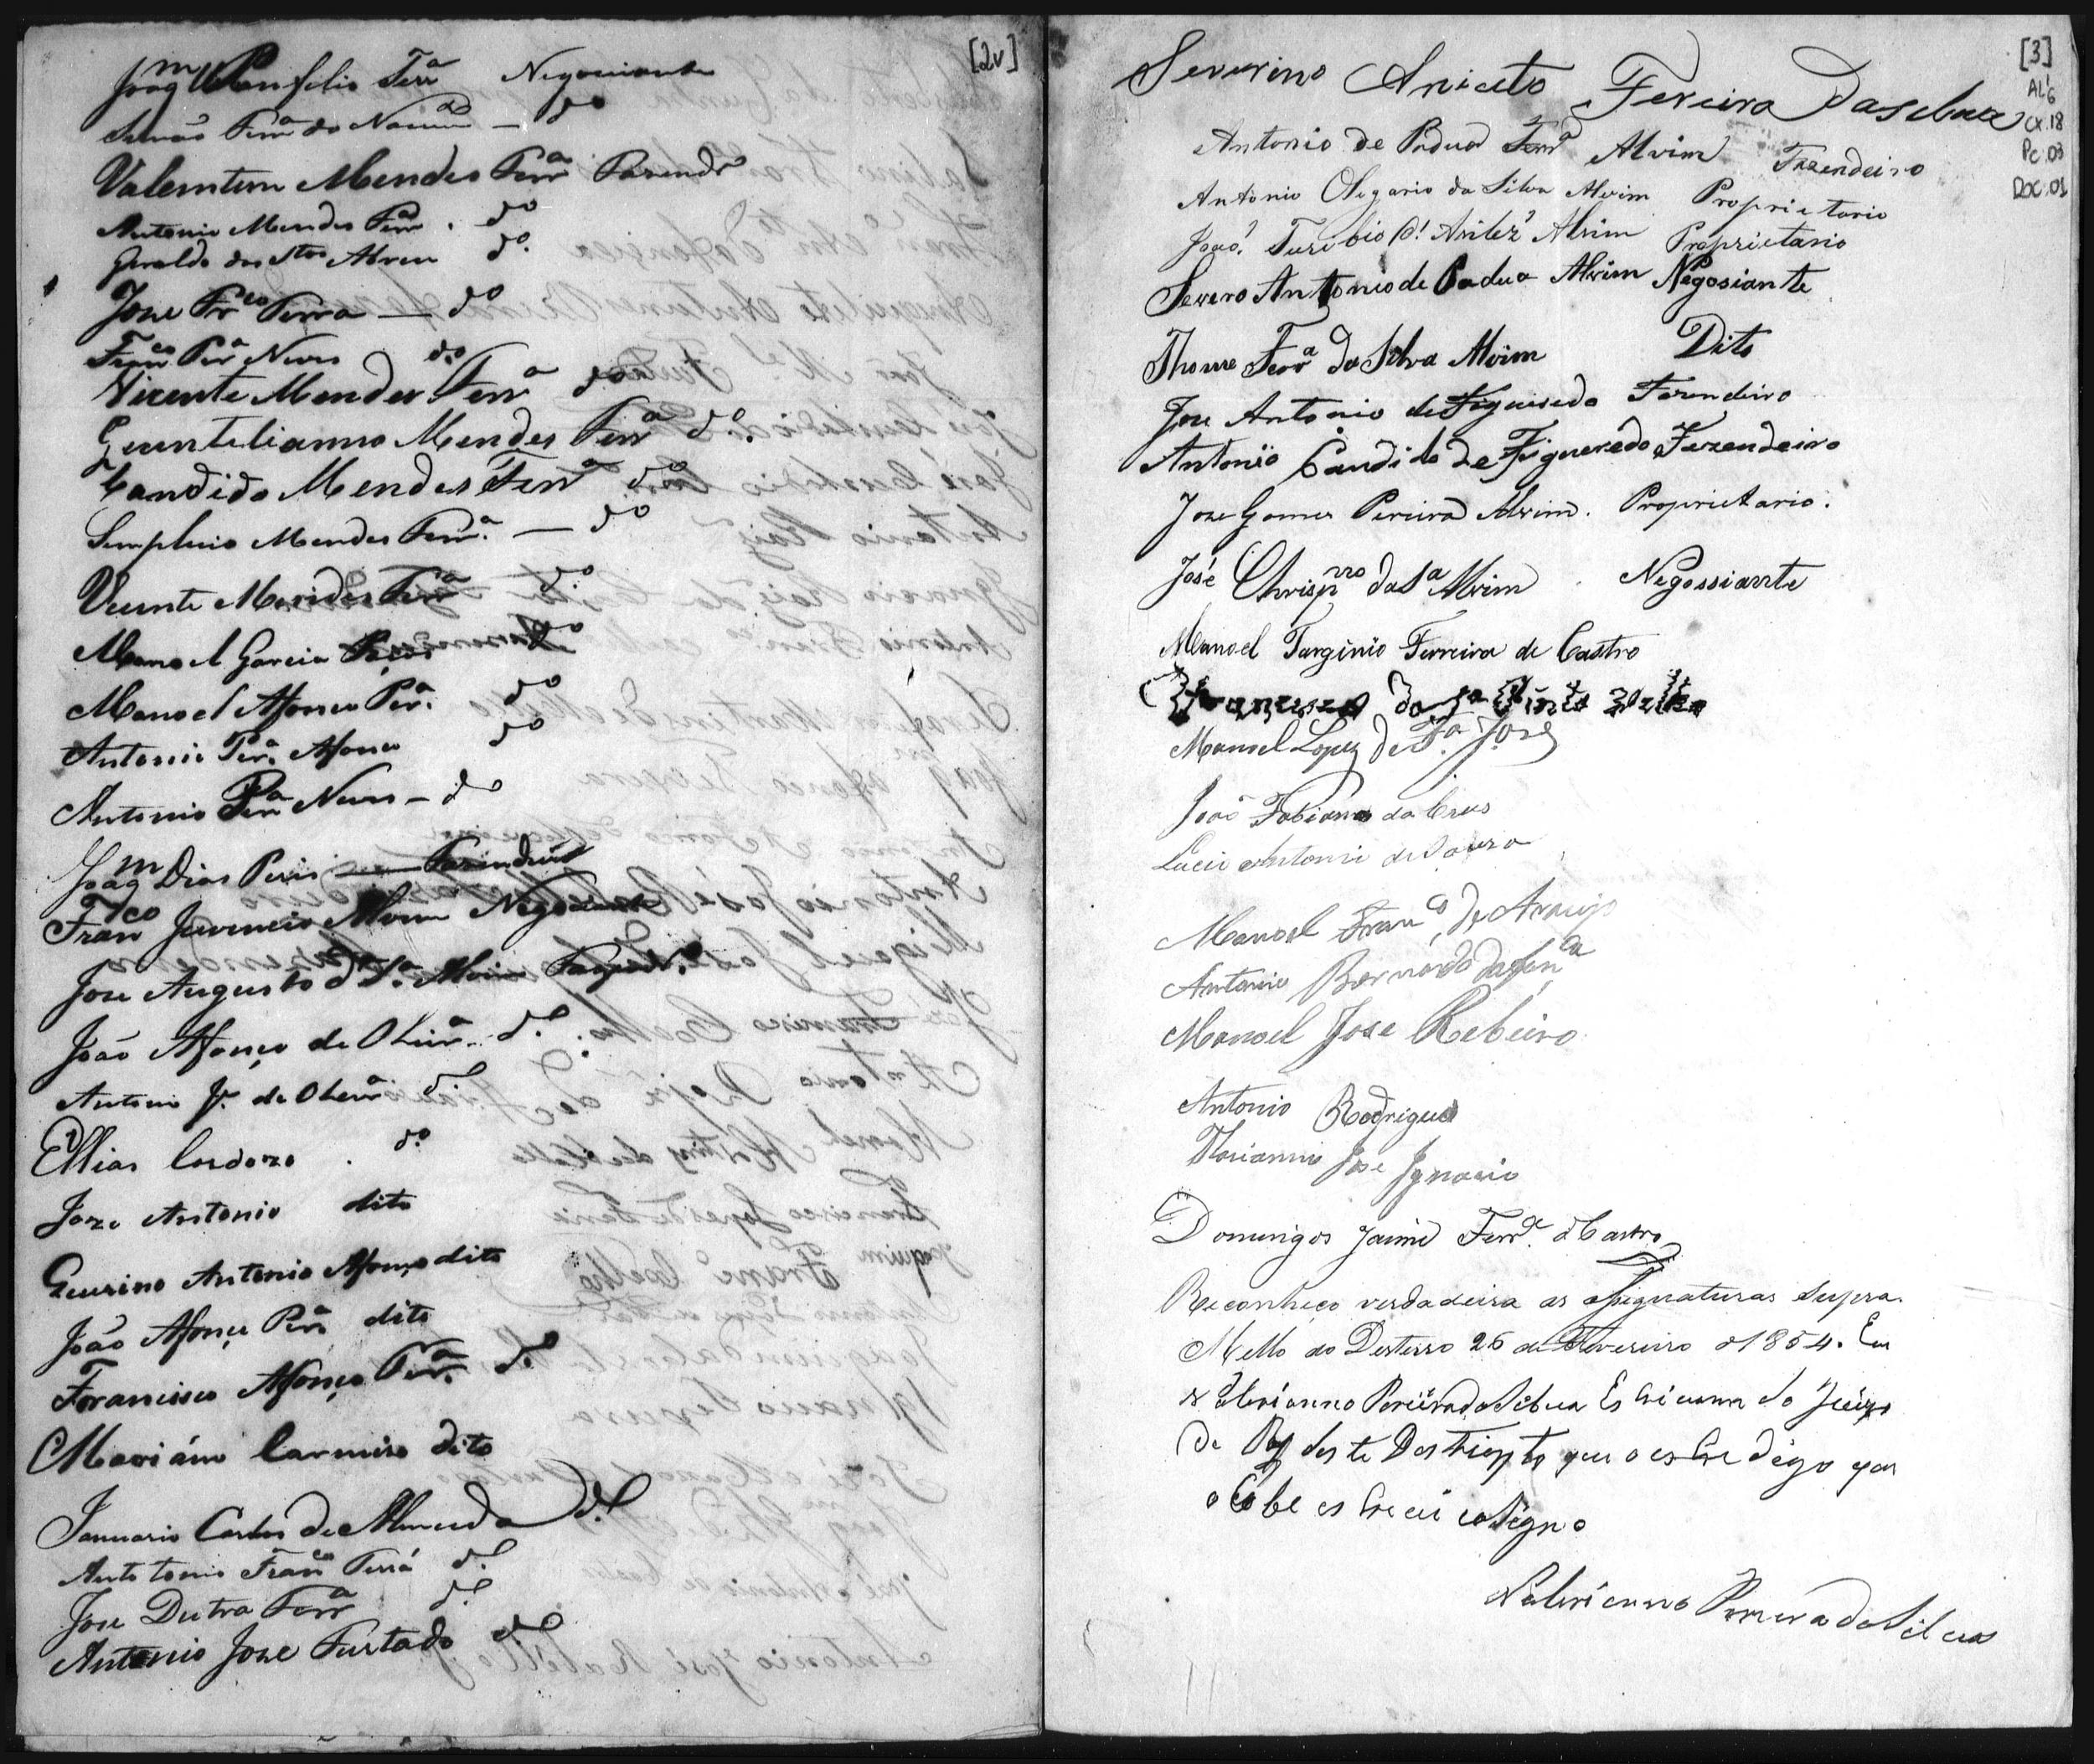 [2v]
Joaqm Panfilio Ferra Negociante
Simão Ferra do Nascim — do
Valemtim Mendes Ferra Fazendo
Antonio Mendes Ferra . do
Geraldo dos Stos Abreu do
Joze Frco Ferra — do
Franco Pera Neves do
Vicente Mendes Ferra do
Quinteliamno Mendes Ferra do
Candido Mendes Ferra do
Semplicio Mendes Ferra — do
Vicente Mendes Ferra do
Manoel Garcia do
Manoel Afonco Pera do
Antonio Pera Afonco do
Antonio Pera Neves — do
Joaqm Dias Pires — Fazendeiro
Franco Juvencio Alvim Negociante
Joze Augusto d Sa Alvim
João Afonço de Olivra do
Antonio Je de Olivra do
Ellias Cardozo . do
Joze Antonio dito
Qeurino Antonio Afonço dito
João Afonço Pera dito
Francisco Afonço Pera do
Mariáno Carmiro dito
Januario Carlos de Almeida do
Anto tonio Franco Ferrá do
Joze Dutra Ferra do
Antonio Joze Furtado do
[3]
AL'6
CX.18
Pc.03
DOC.01
Severino Aniceto Fereira
Antonio de Padua Ferra Alvim Fazendeiro
Antonio Olegario da Silva Alvim Proprietario
João Turibio Alvim Proprietario
Severo Antonio de Padua Alvim Negosiante
Thome Ferra da Silva Alvim Dito
Joze Antonio de Figueiredo Fazendeiro
Antonio Candido de Figueredo Fezendeiro
Joze Gomes Pereira Alvim. Proprietario.
José Chrispnno da Sa Alvim . Negossiante
Manoel Targinio Ferreira de Castro
Francisco da
Manoel Lopez de Fa José
João Fabiano da Crus
Lucio Antonio de Souza
Manoel Franco de Araujo
Antonio Bernardo da
Manoel Jose Rebeiro
Antonio Rodrigues
Florianno Jose Ignacio
Domingos Jaime Ferra d Castro
Reconheço verdadeira as assignaturas supra.
Mello do Desterro 26 de Fevereiro d 1854. Eu
Valerianno Pereira da Silva Escrivam do Juizo
de Paz deste Destricto que o escre digo que
o sobe escrevi e asigno
Valerianno Perreira da Silva